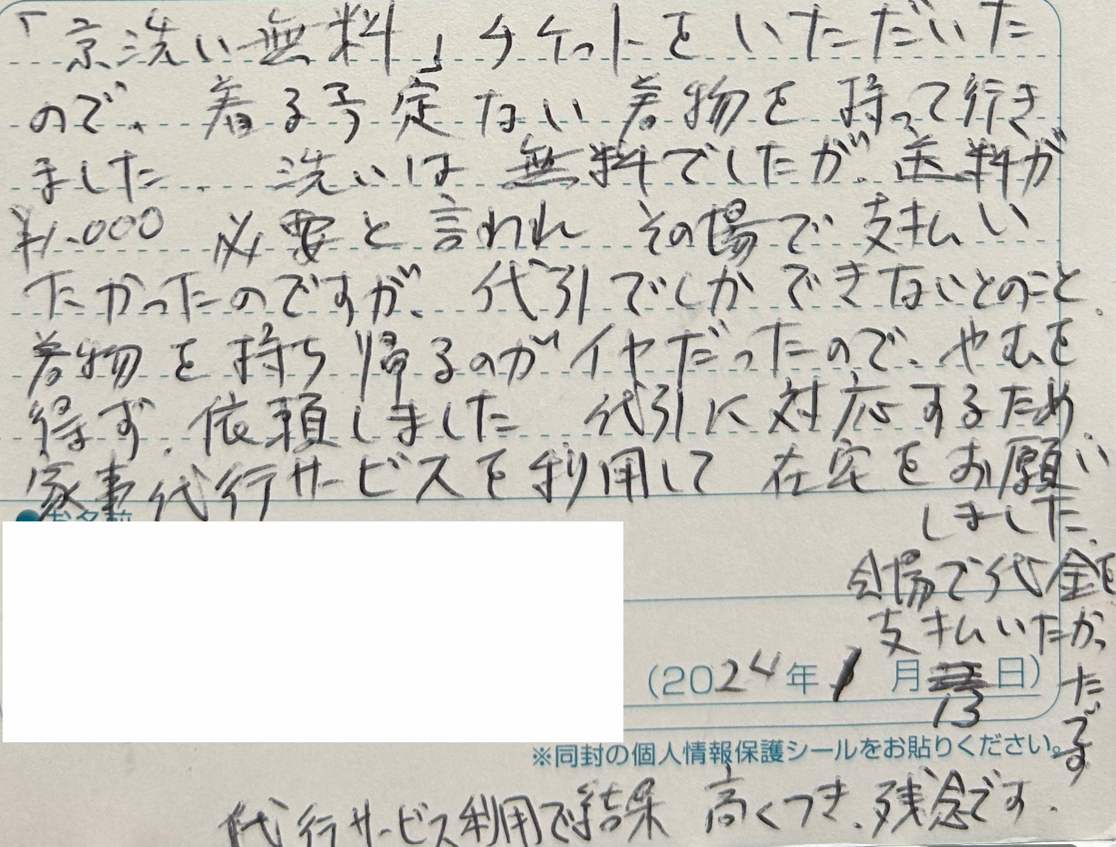 「京洗い無料」チケットをいただいた
ので、着る予定ない着物を持って行き
ました。洗いは無料でしたが、送料が
¥1,000必要と言われ その場で支払い
たかったのですが、代引でしかできないとのこと。
着物を持ち帰るのがイヤだったので、やむを
得ず、依頼しました 代引に対応するため
家事代行サービスを利用して 在宅をお願い
しました。
会場で代金を
支払いたかっ
たです
(2024年1月13日)
※同封の個人情報保護シールをお貼りください。
代行サービス利用で結果 高くつき、残念です。